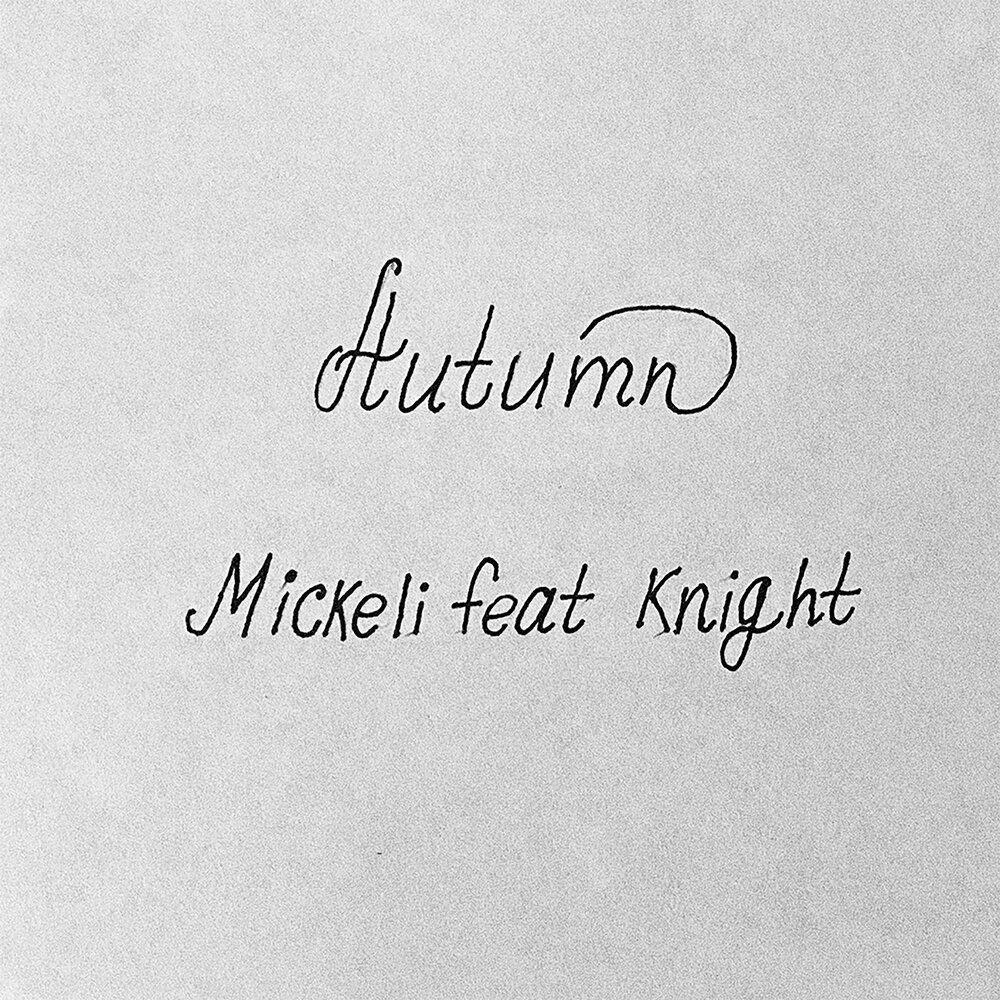 Autumn
Mickeli feat Knight